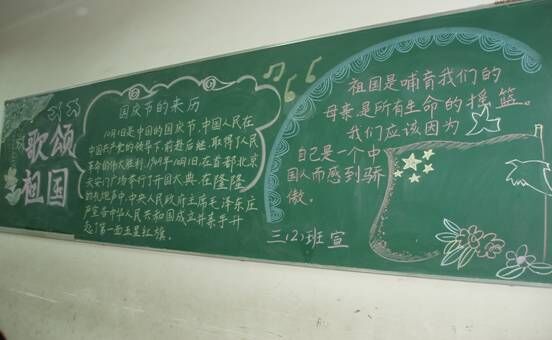 歌颂
祖国
国庆节的来历
10月1日是中国的国庆节,中国人民在
中国共产党的领导下前赴后继,取得了人民
革命的伟大胜利.1949年10月1日,在首都北京
天安门广场举行了开国大典,在隆隆
的礼炮声中,中央人民政府主席毛泽东庄
严宣告中华人民共和国成立并亲手升
起了第一面五星红旗。
祖国是哺育我们的
母亲,是所有生命的摇篮。
我们应该因为
自己是一个中
国人而感到骄
傲。
三(2)班宣